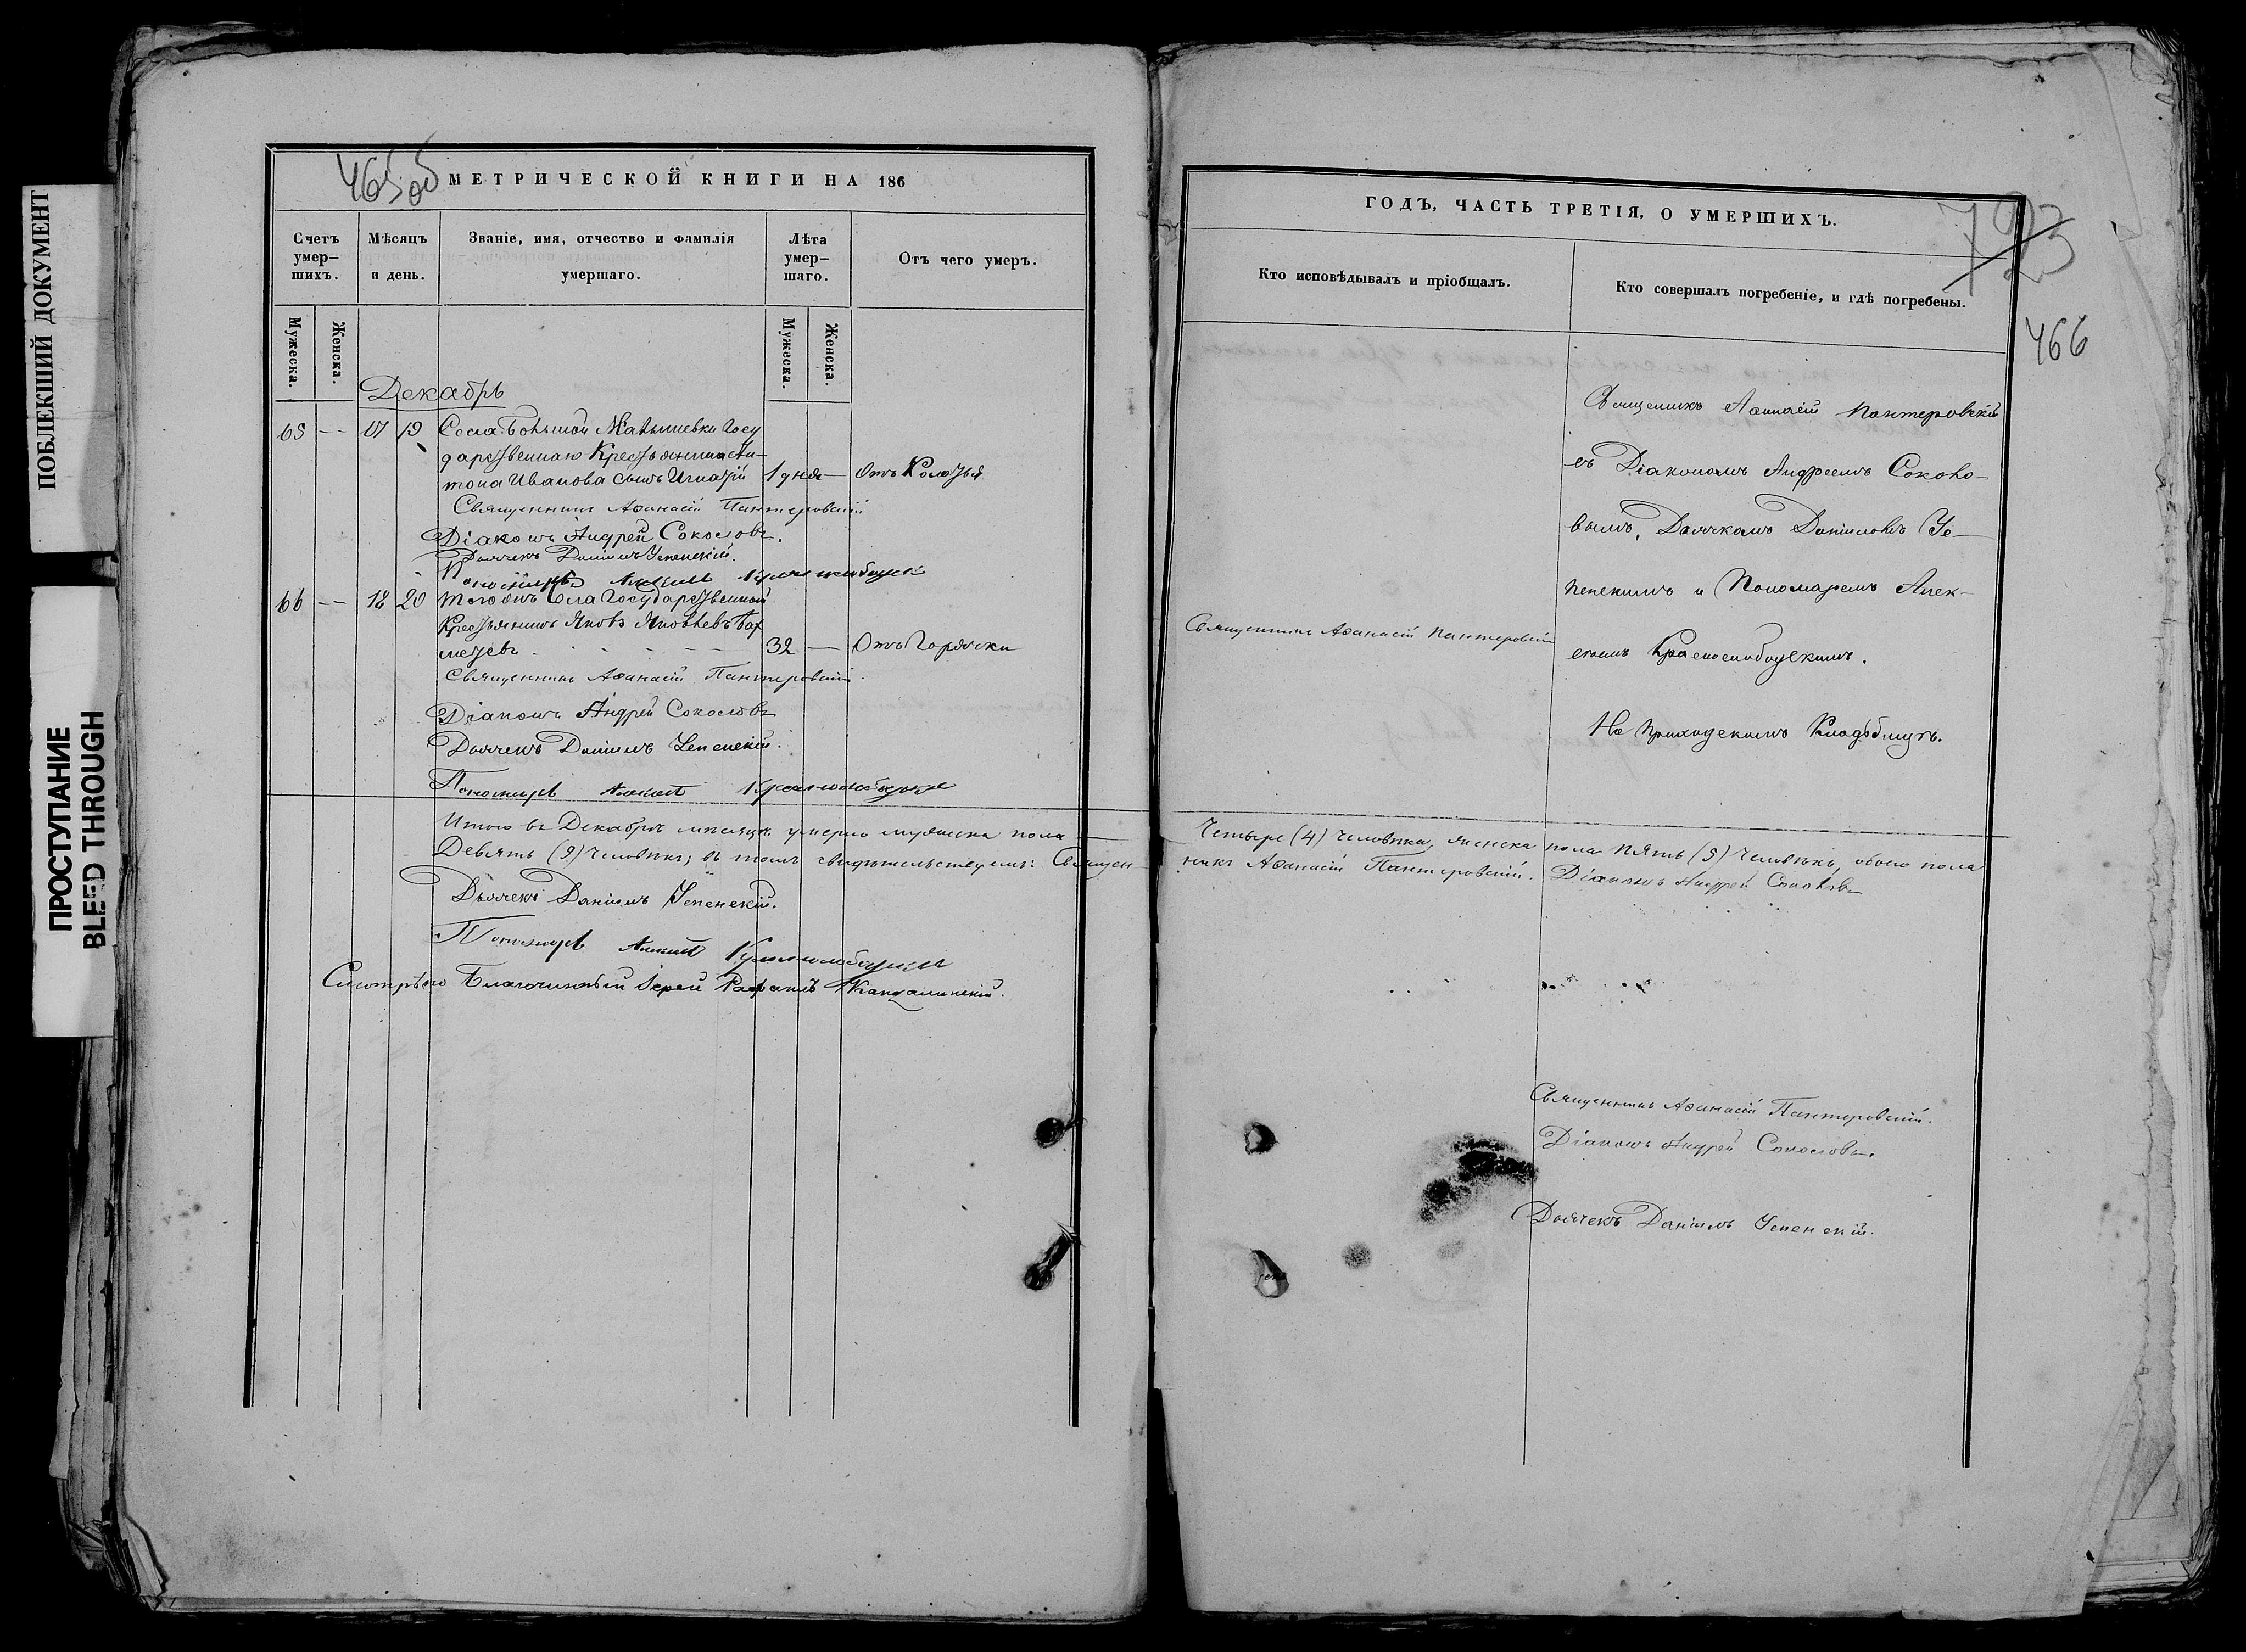 ПОБЛЕКШИЙ ДОКУМЕНТ
ПРОСТУПАНИЕ
BLEED THROUGH
465об
МЕТРИЧЕСКОЙ КНИГИ НА 186
Счетъ умер-шихъ.
Мѣсяцъ и день.
Званіе, имя, отчество и фамилія умершаго.
Лѣта умер-шаго.
Отъ чего умеръ.
Мужеска.
Женска.
Мужеска.
Женска.
Декабрь
65 — 17 19 Села Большой Матышевки Госу
дарственнаго Крестьянина Ан-
тона Иванова сынъ Игнатій 1 дня — Отъ Колотья
Священникъ Аѳанасій Пантеровскій
Діаконъ Андрей Соколовъ.
Дьячекъ Даніилъ Успенскій.
Пономарь Алексѣй Краснослободскій
66 — 18 20 Того же Села Государственный
Крестьянинъ Яковъ Яковлевъ Бах
метевъ 32 — Отъ Горячки
Священникъ Аѳанасій Пантеровскій
Діаконъ Андрей Соколовъ
Дьячекъ Даніилъ Успенскій.
Пономарь Алексѣй Краснослободскій
Итого въ Декабрѣ мѣсяцѣ умерло мужеска пола
Девять (9) Человѣкъ; въ томъ свидѣтельствуемъ: Священ-
Дьячекъ Даніилъ Успенскій.
Пономарь Алексѣй Краснослободскій
Смотрѣлъ Благочинный Іерей Рафаилъ Канзалинскій.
ГОДЪ, ЧАСТЬ ТРЕТІЯ, О УМЕРШИХЪ.
723
466
Кто исповѣдывалъ и пріобщалъ.
Кто совершалъ погребеніе, и гдѣ погребены.
Священникъ Аѳанасій Пантеровскій
съ Діакономъ Андреемъ Соколо-
вымъ, Дьячкомъ Даніиломъ Ус-
пенскимъ и Пономаремъ Алек-
Священникъ Аѳанасій Пантеровскій
сѣемъ Краснослободскимъ.
На Приходскомъ Кладбищѣ.
Четыре (4) Человѣка, женска пола Пять (5) Человѣкъ, обоего пола
никъ Аѳанасій Пантеровскій. Діаконъ Андрей Соколовъ
Священникъ Аѳанасій Пантеровскій.
Діаконъ Андрей Соколовъ.
Дьячекъ Даніилъ Успенскій.